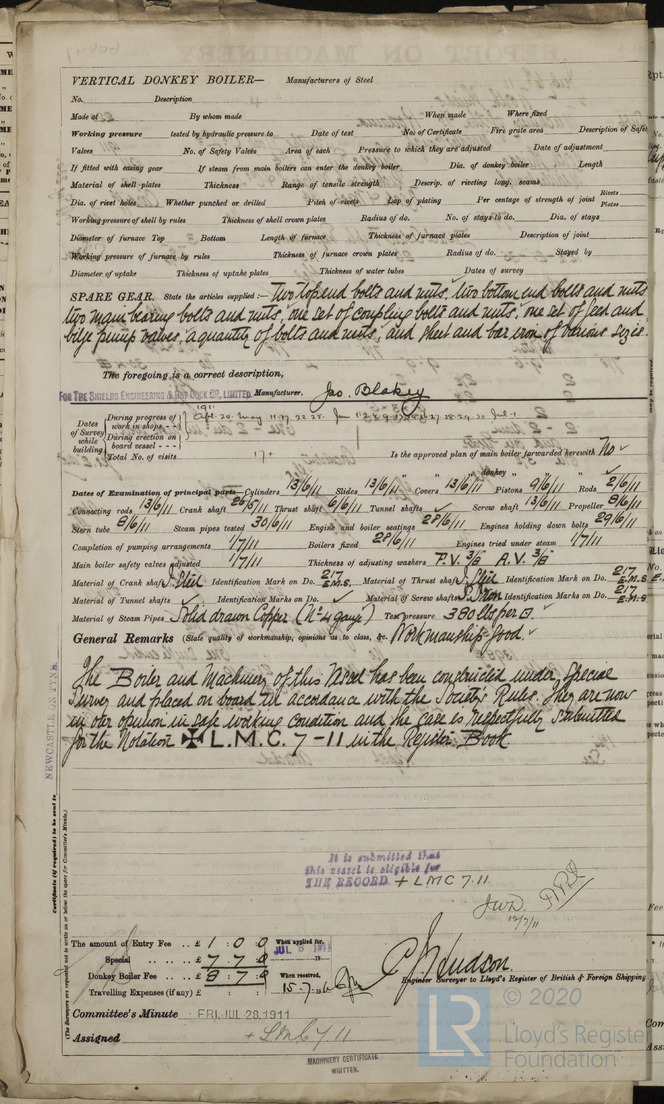 VERTICAL DONKEY BOILER— Manufacturers of Steel
No. Description
Made at By whom made When made Where fixed
Working pressure tested by hydraulic pressure to Date of test No. of Certificate Fire grate area Description of Safe
Valves No. of Safety Valves Area of each Pressure to which they are adjusted Date of adjustment
If fitted with easing gear If steam from main boilers can enter the donkey boiler Dia. of donkey boiler Length
Material of shell plates Thickness Range of tensile strength Descrip. of riveting long. seams
Dia. of rivet holes Whether punched or drilled Pitch of rivets Lap of plating Per centage of strength of joint Rivets Plates
Working pressure of shell by rules Thickness of shell crown plates Radius of do. No. of stays to do. Dia. of stays
Diameter of furnace Top Bottom Length of furnace Thickness of furnace plates Description of joint
Working pressure of furnace by rules Thickness of furnace crown plates Radius of do. Stayed by
Diameter of uptake Thickness of uptake plates Thickness of water tubes Dates of survey
SPARE GEAR. State the articles supplied:— Two top end bolts and nuts, two bottom end bolts and nuts
two main bearing bolts and nuts, one set of coupling bolts and nuts, one set of feed and
bilge pump valves, a quantity of bolts and nuts, and sheet and bar iron of various sizes.
The foregoing is a correct description,
FOR THE SHIELDS ENGINEERING & DRY DOCK CO., LIMITED. Manufacturer. Jas. Blakey
Dates of Survey while building
During progress of work in shops - - 1911 Apr. 20. May. 11. 17. 22. 25. Jun 1. 2. 27. 28. 29. 30 Jul. 1.
During erection on board vessel - - -
Total No. of visits 17 Is the approved plan of main boiler forwarded herewith No
" " " donkey "
Dates of Examination of principal parts—Cylinders 13/6/11 Slides 13/6/11 Covers 13/6/11 Pistons 9/6/11 Rods 2/6/11
Connecting rods 13/6/11 Crank shaft 26/5/11 Thrust shaft 6/6/11 Tunnel shafts ✓ Screw shaft 13/6/11 Propeller 8/6/11
Stern tube 8/6/11 Steam pipes tested 30/6/11 Engine and boiler seatings 28/6/11 Engines holding down bolts 29/6/11
Completion of pumping arrangements 1/7/11 Boilers fixed 28/6/11 Engines tried under steam 1/7/11
Main boiler safety valves adjusted 1/7/11 Thickness of adjusting washers P.V. 3/8 A.V. 3/8
Material of Crank shaft I. Steel Identification Mark on Do. 217 E.M.S. Material of Thrust shaft I. Steel Identification Mark on Do. 217 E.M.S
Material of Tunnel shafts ✓ Identification Marks on Do. ✓ Material of Screw shafts S. Iron Identification Marks on Do. 217 E.M.S
Material of Steam Pipes Solid drawn Copper (No 4 gauge) Test pressure 380 lbs per □.
General Remarks (State quality of workmanship, opinions as to class, &c. Workmanship Good.
The Boiler and Machinery of this Vessel has been constructed under Special
Survey and placed on board in accordance with the Society's Rules. They are now
in our opinion in safe working condition and the case is respectfully submitted
for the Notation ✠ L.M.C. 7-11 in the Register Book
It is submitted that
this vessel is eligible for
THE RECORD + LMC 7.11
J.W.D.
17/7/11
NEWCASTLE ON TYNE
Certificate (if required) to be sent to
(The Surveyors are requested not to write on or below the space for Committee's Minute.)
The amount of Entry Fee .. £ 1 : 0 : 0 When applied for,
Special .. .. £ 7 : 7 : 0 JUL 8 1911
Donkey Boiler Fee .. £ 8 : 7 : 0 When received,
Travelling Expenses (if any) £ : : 15.7
C. J. Hudson.
Engineer Surveyor to Lloyd's Register of British & Foreign Shipping
Committee's Minute FRI. JUL 28. 1911
Assigned + LMC 7.11
MACHINERY CERTIFICATE
WRITTEN.
LR
© 2020
Lloyd's Register
Foundation